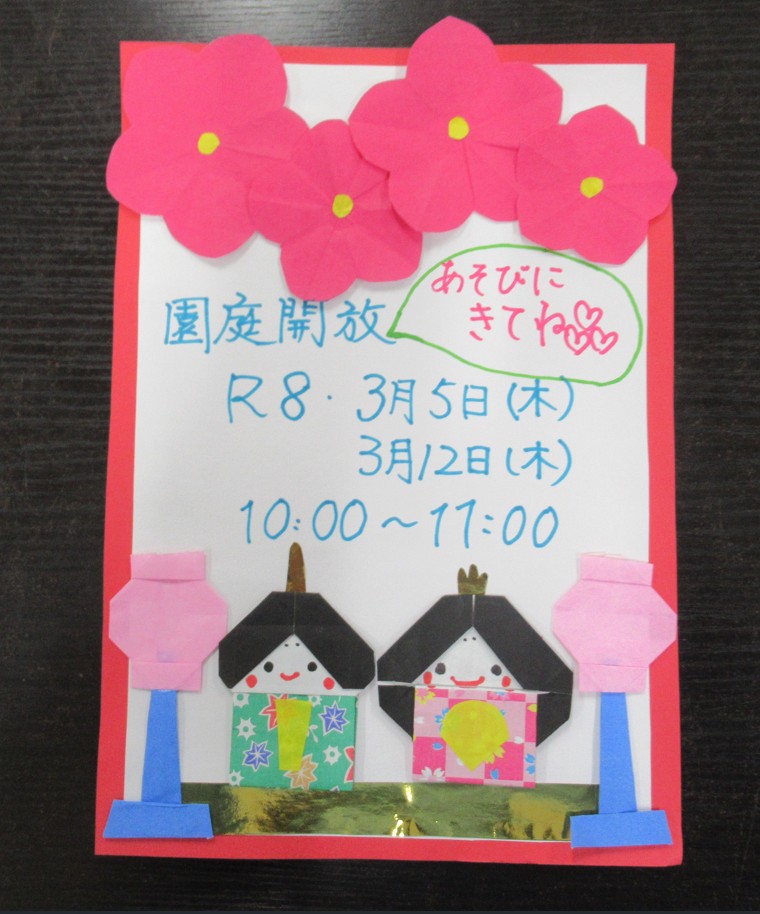 園庭開放
あそびに
きてね♡♡♡
R8. 3月5日(木)
3月12日(木)
10:00〜11:00